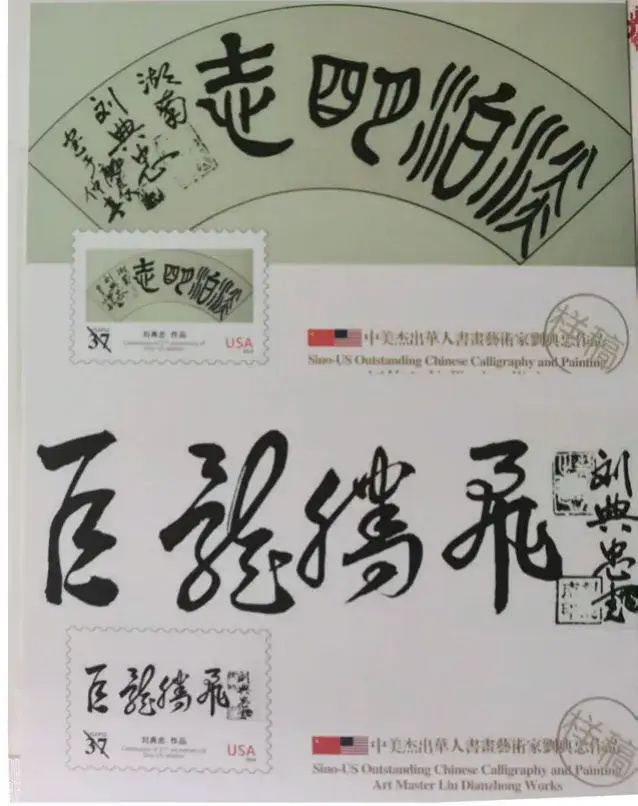 淡泊明志
湖南
刘典忠
淡泊明志
37
刘典忠 作品
USA
样稿
中美杰出華人書畫藝術家劉典忠作品
Sino-US Outstanding Chinese Calligraphy and Painting
巨龍騰飛
刘典忠书
巨龍騰飛
刘典忠书
37
刘典忠 作品
USA
样稿
中美杰出華人書畫藝術家劉典忠作品
Sino-US Outstanding Chinese Calligraphy and Painting
Art Master Liu Dianzhong Works